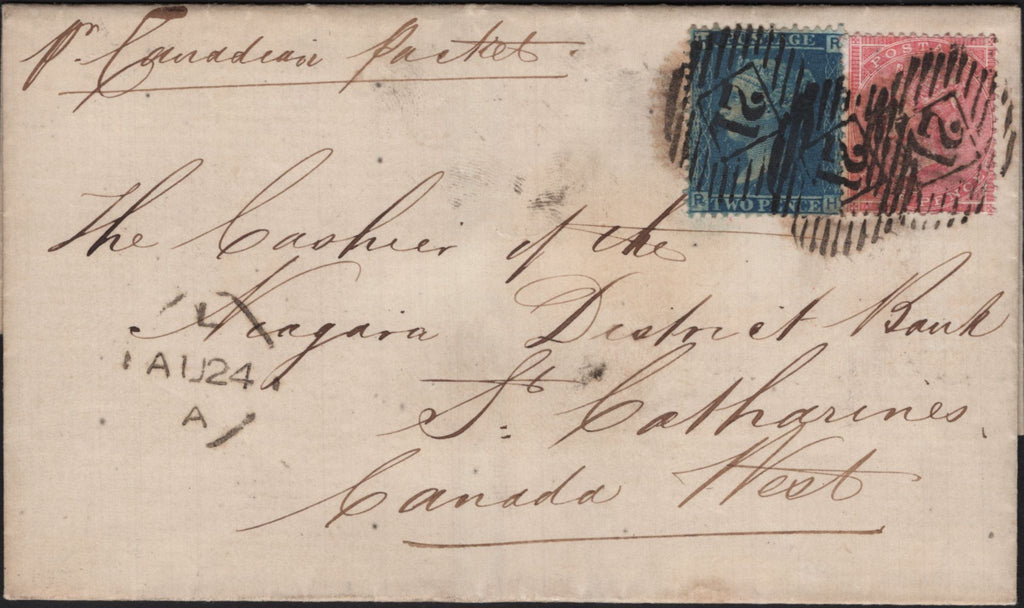 pr Canadian Packet.
R
TWO PENCE
R H
POST
21
21
21
The Cashier of the
Niagara District Bank
St. Catharines,
Canada West
L
AU24
A